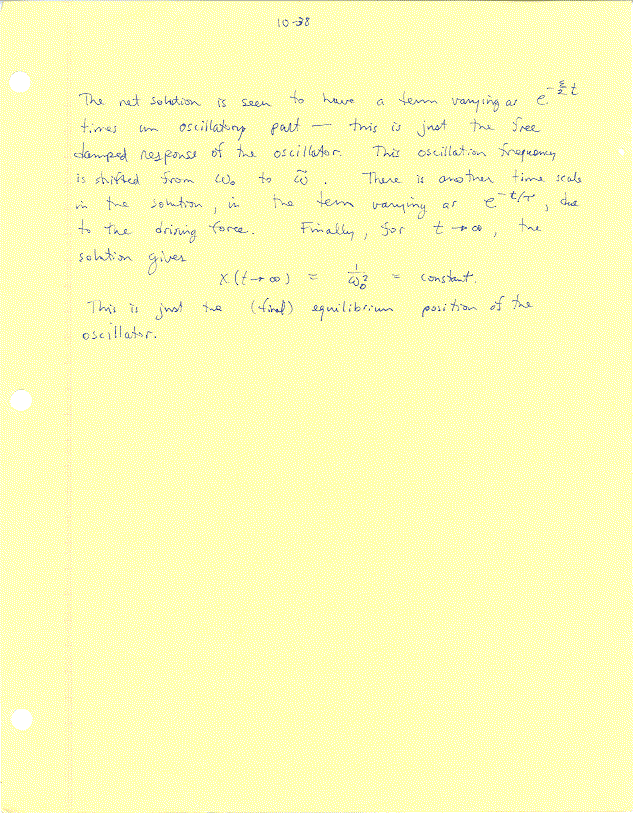 10-38
The net solution is seen to have a term varying as e^{-\frac{ε}{2}t}
times an oscillatory part — this is just the free
damped response of the oscillator. This oscillation frequency
is shifted from ω₀ to ω̃. There is another time scale
in the solution, in the term varying as e^{-t/τ}, due
to the driving force. Finally, for t → ∞, the
solution gives
x(t→∞) = \frac{1}{ω₀²} = constant.
This is just the (final) equilibrium position of the
oscillator.